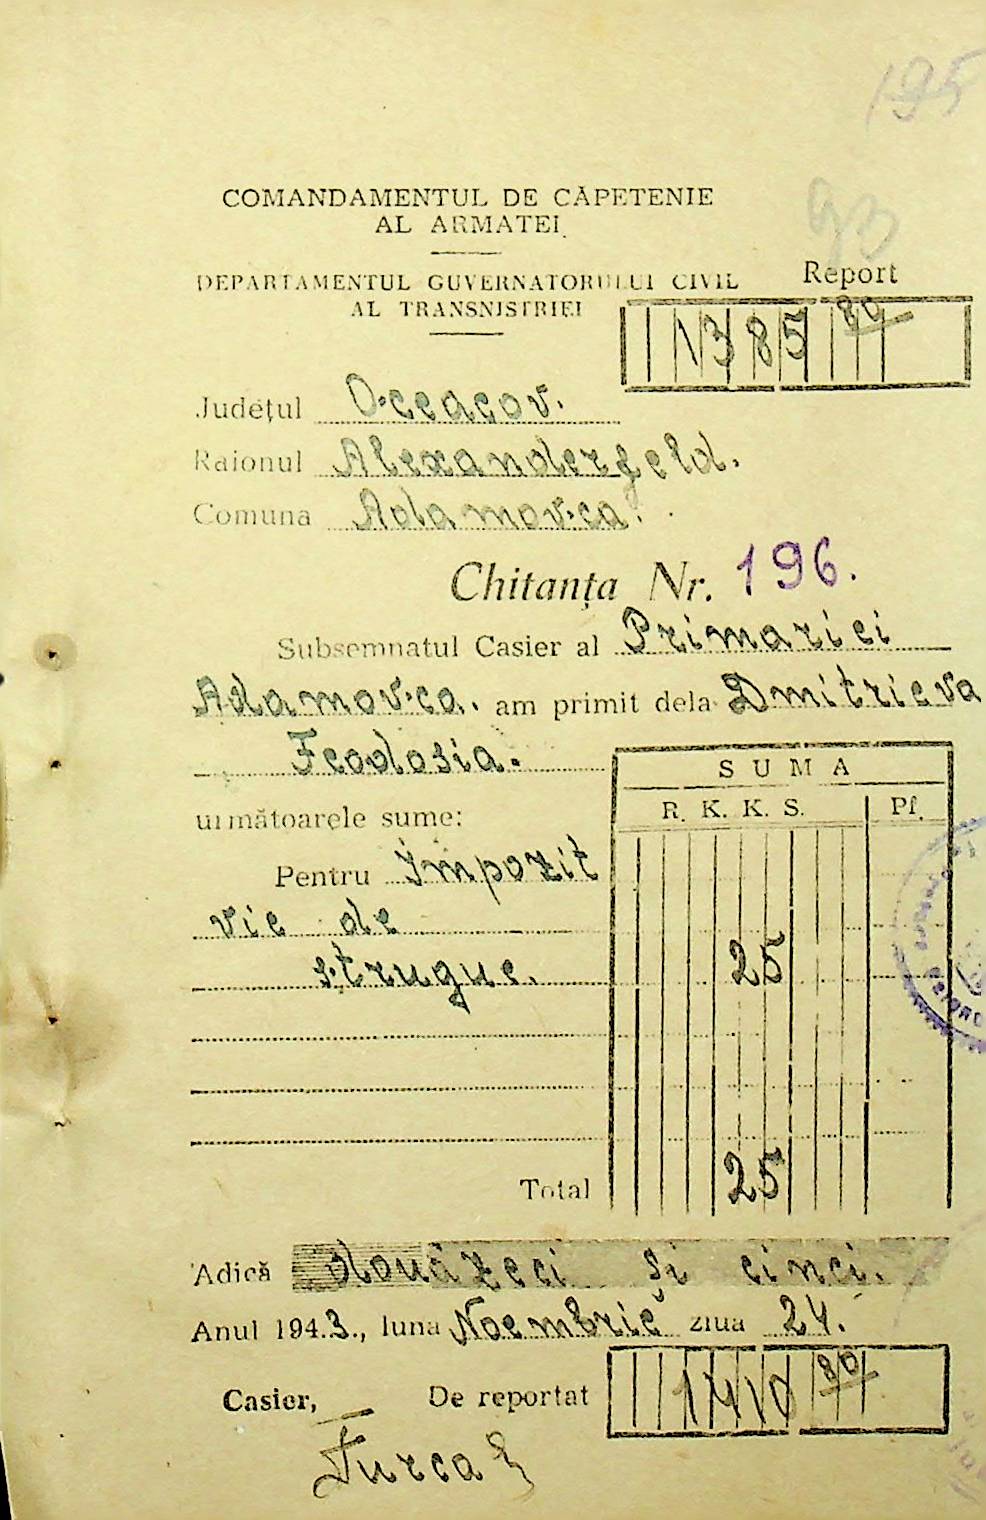 195
93
COMANDAMENTUL DE CĂPETENIE
AL ARMATEI
DEPARTAMENTUL GUVERNATORULUI CIVIL
AL TRANSNISTRIEI
Report
1385 80
Județul Oceacov.
Raionul Alexanderfeld.
Comuna Adamovca.
Chitanța Nr. 196.
Subsemnatul Casier al Primariei
Adamovca. am primit dela Dmitrieva
Feodosia.
SUMA
R. K. K. S. Pf.
următoarele sume:
Pentru impozit
vie de
strugue. 25
Total 25
Adică douăzeci si cinci.
Anul 1943., luna Noembrie ziua 24.
Casier, De reportat 1410 80
Turca